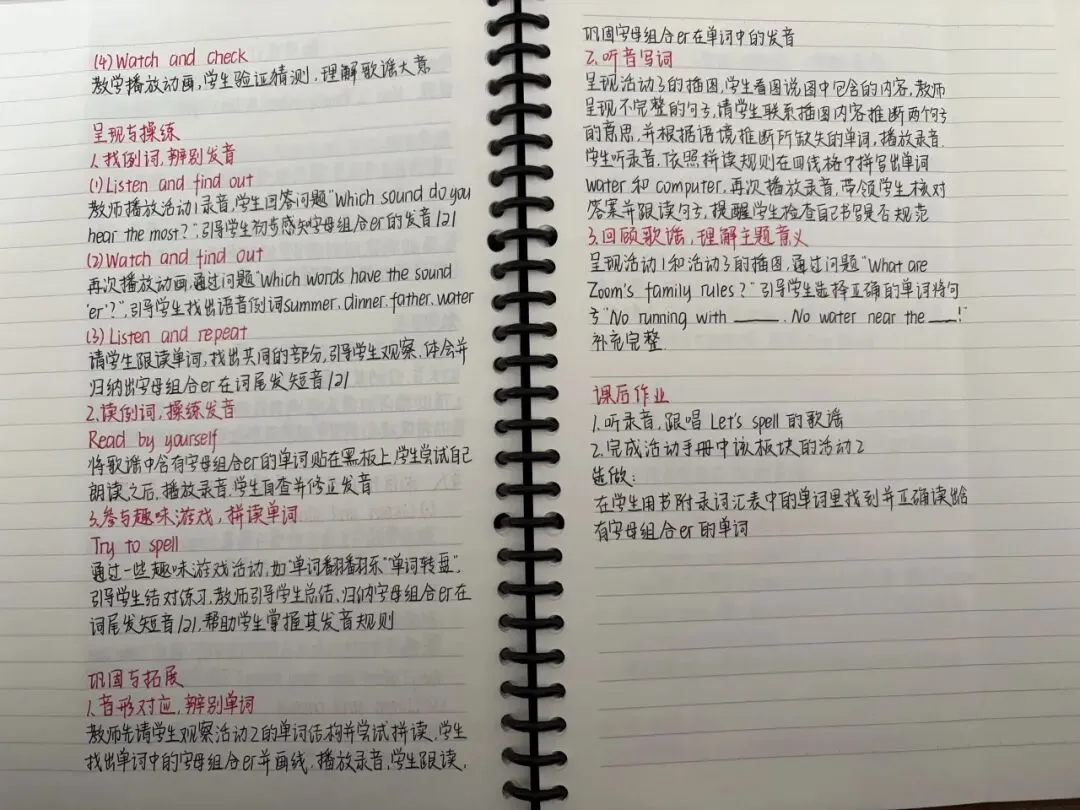 (4) Watch and check
教学播放动画,学生验证猜测,理解歌谣大意
呈现与操练
1.找例词,辨别发音
(1)Listen and find out
教师播放活动1录音,学生回答问题"Which sound do you
hear the most?",引导学生初步感知字母组合er的发音/ə/
(2)Watch and find out
再次播放动画,通过问题"Which words have the sound
'er'?",引导学生找出语音例词summer.dinner.father.water
(3)Listen and repeat
请学生跟读单词,找出共同的部分,引导学生观察、体会并
归纳出字母组合er在词尾发短音/ə/
2.读例词,操练发音
Read by yourself
将歌谣中含有字母组合er的单词贴在黑板上,学生尝试自己
朗读之后,播放录音,学生自查并修正发音
3.参与趣味游戏,拼读单词
Try to spell
通过一些趣味游戏活动,如"单词翻翻乐""单词转盘",
引导学生结对练习,教师引导学生总结、归纳字母组合er在
词尾发短音/ə/,帮助学生掌握其发音规则
巩固与拓展
1.音形对应,辨别单词
教师先请学生观察活动2的单词结构并尝试拼读,学生
找出单词中的字母组合er并画线,播放录音,学生跟读,
巩固字母组合er在单词中的发音
2.听音写词
呈现活动3的插图,学生看图说图中包含的内容,教师
呈现不完整的句子,请学生联系插图内容推断两个句子
的意思,并根据语境推断所缺失的单词,播放录音.
学生听录音,依照拼读规则在四线格中拼写出单词
water和computer,再次播放录音,带领学生核对
答案并跟读句子,提醒学生检查自己书写是否规范
3.回顾歌谣,理解主题意义
呈现活动1和活动3的插图,通过问题"What are
Zoom's family rules?"引导学生选择正确的单词将句
子"No running with ____. No water near the ___!"
补充完整.
课后作业
1.听录音,跟唱 Let's spell 的歌谣
2.完成活动手册中该板块的活动2
选做:
在学生用书附录词汇表中的单词里找到并正确读出含
有字母组合er的单词